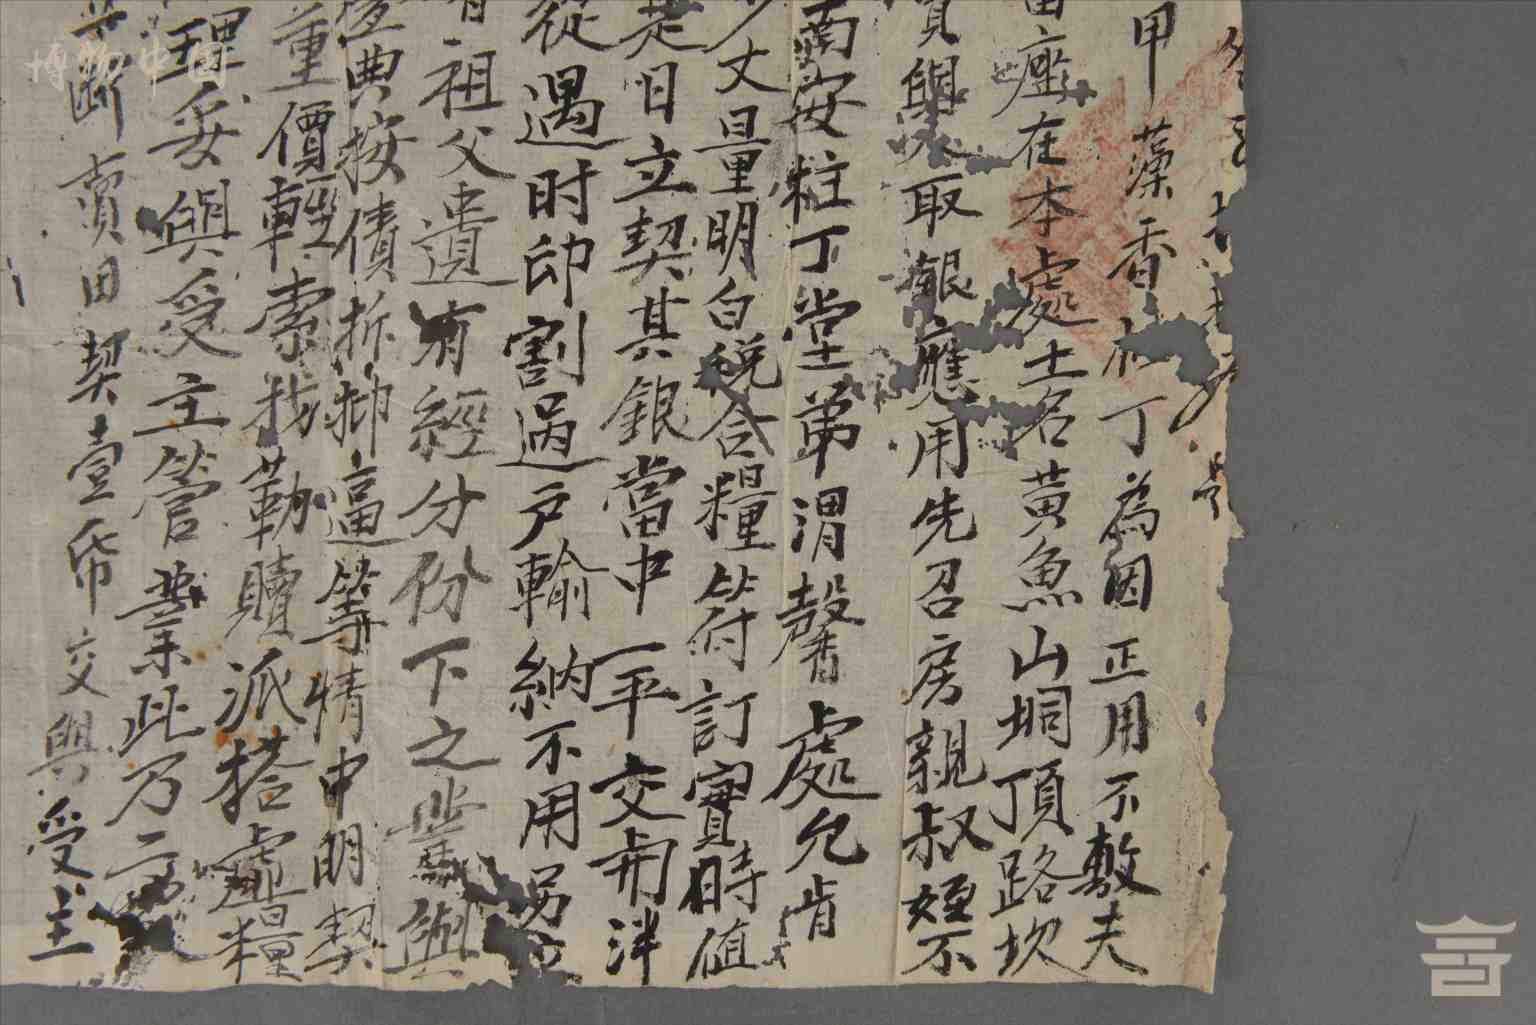 甲藻香杜丁為因正用不敷夫
畱壢在本處土名黃魚山垌頂路坎
賣與人取銀應用先召房親叔姪不
南安柱丁堂弟渭馨處允肯
丈量明白税合糧符訂實時值
是日立契其銀當中一平交兩泮
從遇时印割過户輸納不用另
祖父遺有經分份下之業與
典按債折抑逼等情中明契
重價輕索找勒贖派搭虛糧
理妥與受主管業此乃二
斷賣田契壹帋交與受主
博物中国